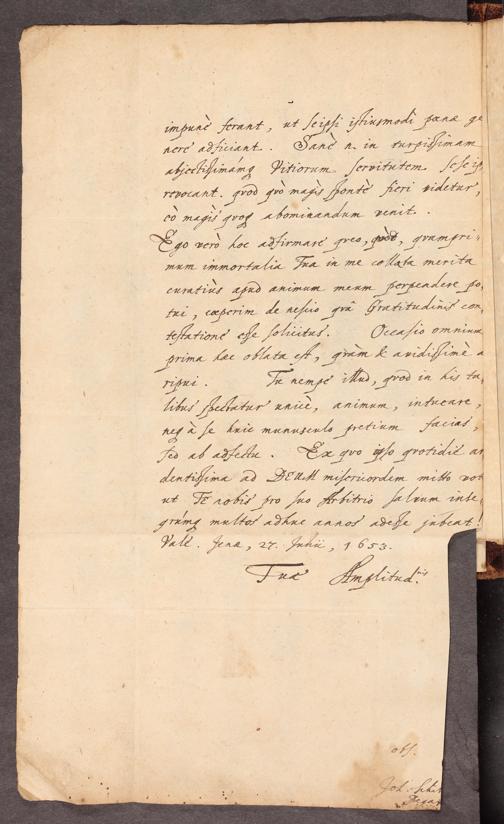 impunè ferant, ut seipsi istiusmodi pœnæ ge
nere adficiant. Sanè n. in turpissimam
abjectissimámq Vitiorum servitutem sese ip
revocant. qvod qvò magis spontè fieri videtur,
eò magis qvoq abominandum venit.
Ego verò hoc adfirmare qveo, qvòd, qvampri-
mum immortalia Tua in me collata merita
curatiùs apud animum meum perpendere po
tui, cœperim de nescio qvâ Gratitudinis con
testatione esse solicitus. Occasio omnium
prima hæc oblata est, qvam & avidissimè a
ripui. Tu nempe illud, qvod in his ta
libus spectatur unicè, animum, intueare,
neq à se huic munusculo pretium facias,
sed ab adfectu. Ex qvo ipso qvotidiè ar
dentissima ad DEUM misericordem mitto vot
ut TE nobis pro suo Arbitrio salvum inte
grúmq multos adhuc annos adesse jubeat!
Vale. Jenæ, 27. Junii, 1653.
Tuæ Amplitud.nis
obs.
Joh.